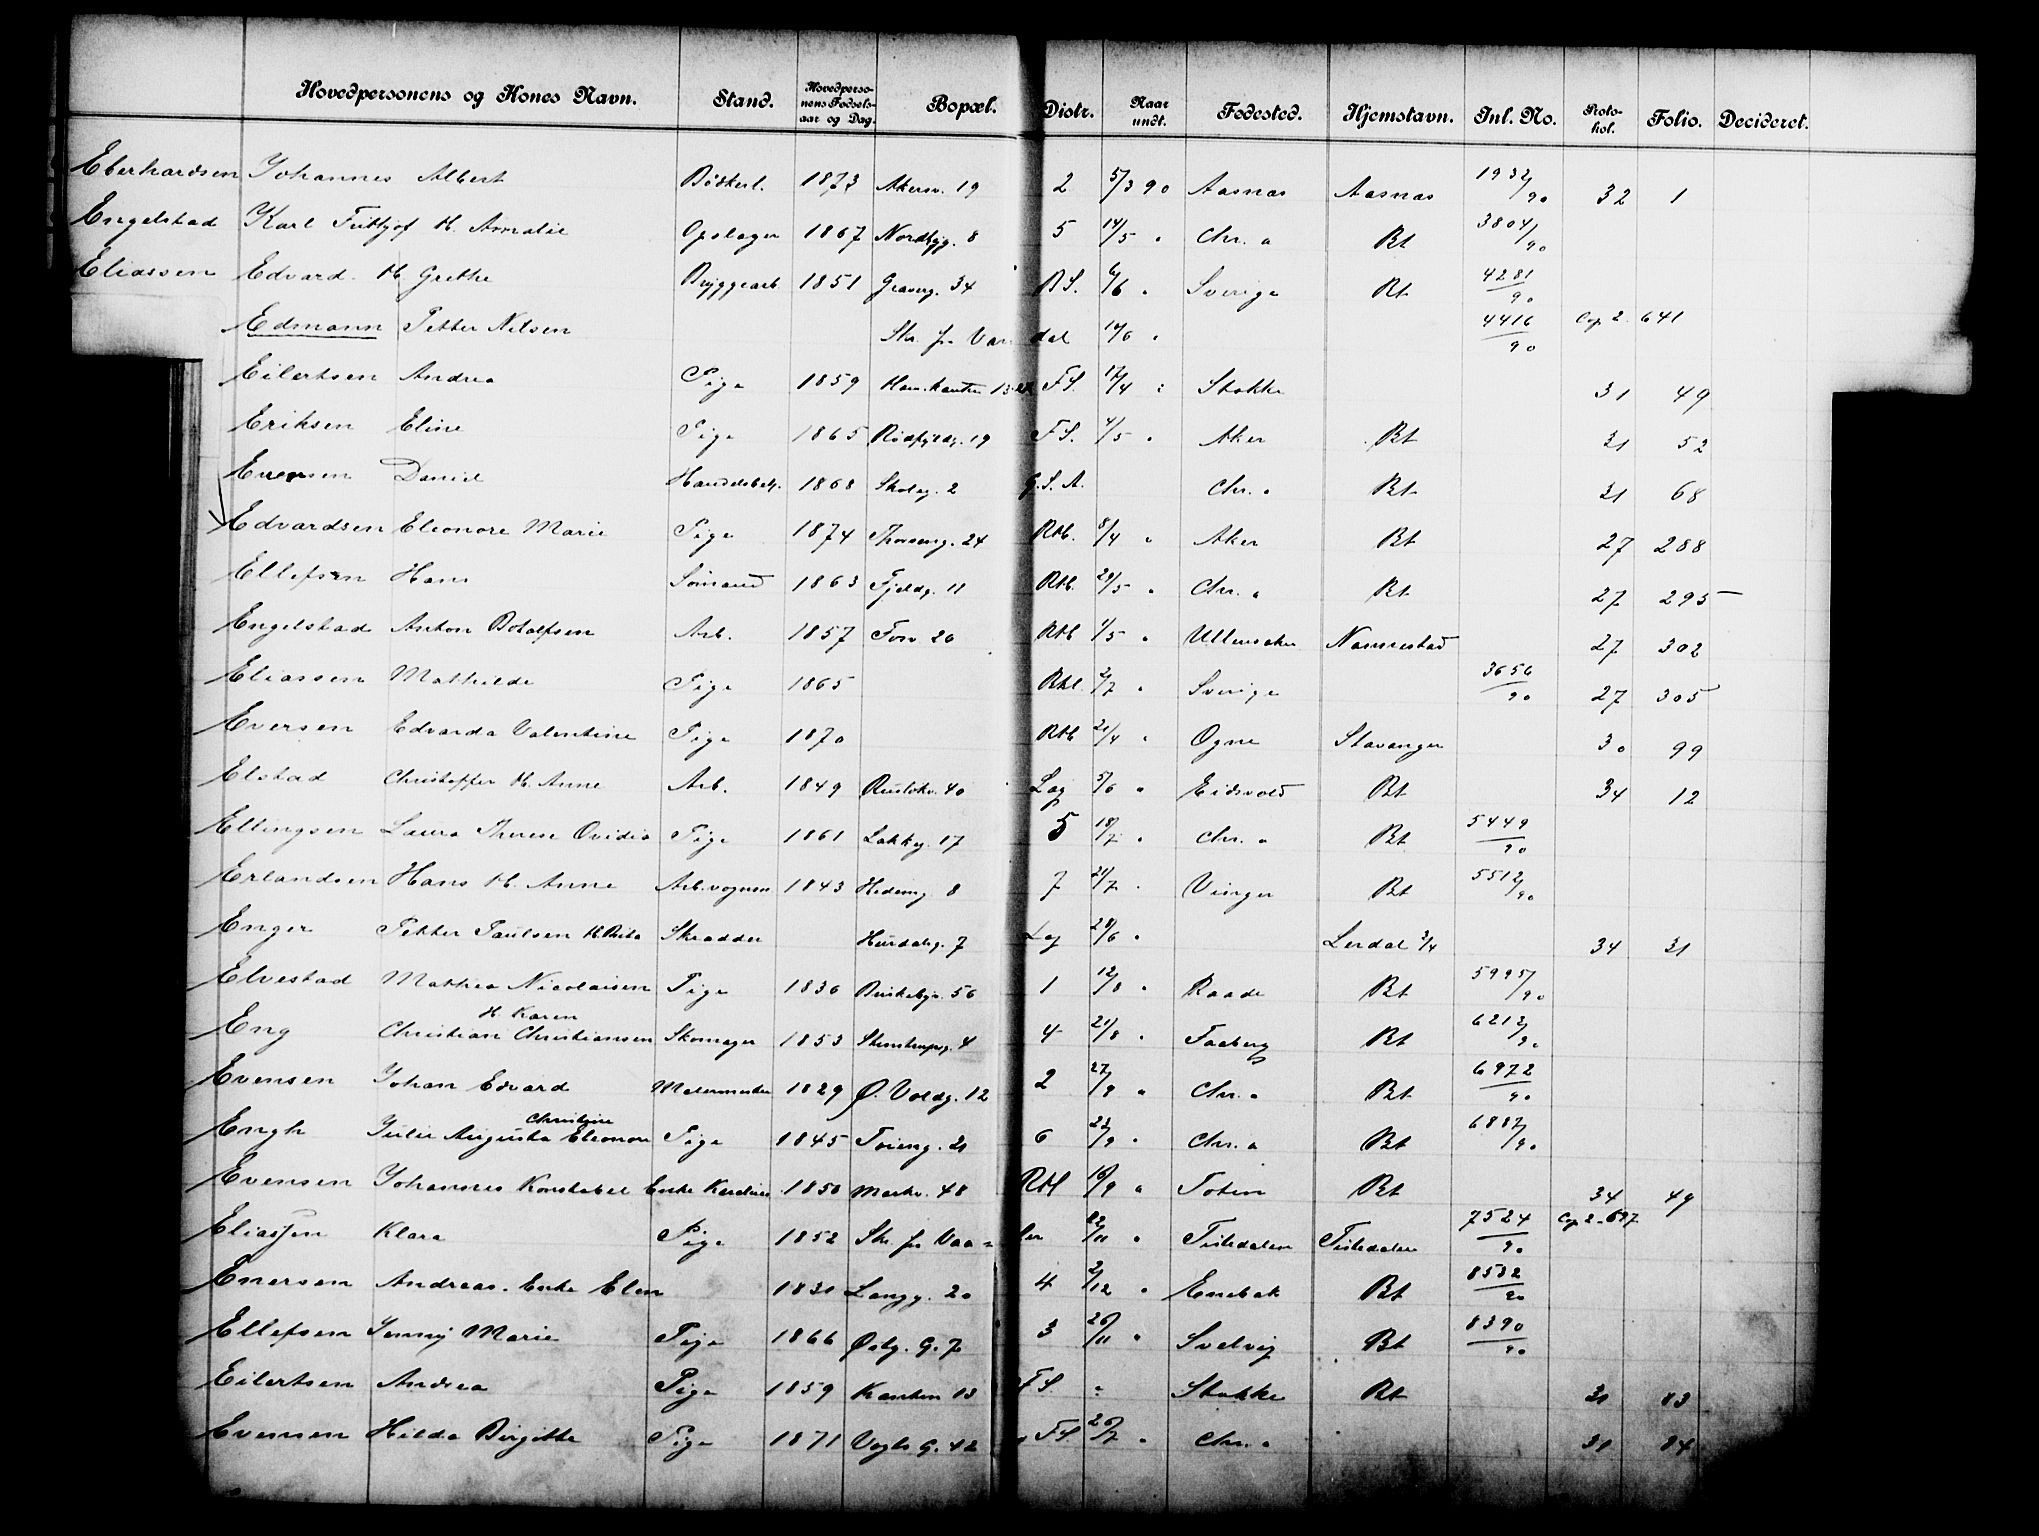 Hovedpersonens og Kones Navn. Stand. Hovedpersonens Fødselsaar og Dag. Bopæl. Distr. Naar undt. Fødested. Hjemstavn. Inl. No. Protokol. Folio. Decideret.
Eberhardsen Johannes Albert Bödkerl. 1873 Akersv. 19 2 5/3 90 Aasnæs Aasnæs 1932/90 32 1
Engelstad Karl Frithjof H. Amalie Opslager 1867 Nordbyg. 8 5 14/5 " Chr.a Bt 3804/90
Eliassen Edvard H. Grethe Bryggearb 1851 Graverg. 34 BS. 6/6 " Sverige Bt 4281/90
Edmann Petter Nilsen Skr. fr. Værdal 14/6 " 4416/90 Cop 2 641
Eilertsen Andrea Pige 1859 FS. 17/4 " Stokke 31 49
Eriksen Eline Pige 1865 Rödfyldg. 19 FS. 4/5 " Aker Bt 31 52
Daniel Handelsbetj. 1868 Skoleg. 2 G.S.A. Chr.a Bt 31 68
Edvardsen Eleonore Marie Pige 1874 Thorseng. 24 Rtb. 8/4 " Aker Bt 27 288
Ellefsen Hans Sömand 1863 Fjeldg. 11 Rtb. 29/5 " Chr.a Bt 27 295
Engelstad Anton Botolfsen Arb. 1857 Torv 26 Rtb 1/5 " Ullensaker Nannestad 27 302
Eliassen Mathilde Pige 1865 Rtb. 2/7 " Sverige 3656/90 27 305
Eversen Edvarda Valentine Pige 1870 Rtb 21/4 " Ogne Stavanger 30 99
Elstad Christoffer H. Anne Arb. 1849 Ruslökv. 40 Log 5/6 " Eidsvold Bt 34 12
Ellingsen Laura Therese Ovidia Pige 1861 Lakkeg. 17 5 18/7 " Chr.a Bt 5449/90
Erlandsen Hans H. Anne Arb.vognm 1843 Hedemg 8 7 21/7 " Vinger Bt 5512/90
Enger Petter Paulsen H. Skrædder Hurdalsg. 7 Log 28/6 " Lerdal 3/4 34 31
Elvestad Mathea Nicolaisen Pige 1836 Birkebgr. 56 1 12/8 " Raade Bt 5995/90
H. Karen
Eng Christian Christiansen Skomager 1853 Stenstrupg. 4 4 21/8 " Faaberg Bt 6212/90
Evensen Johan Edvard Malermester 1829 Ø. Voldg. 12 2 27/9 " Chr.a Bt 6972/90
Christine
Engh Julie Augusta Eleonore Pige 1845 Töieng. 21 6 23/9 " Chr.a Bt 6887/90
Evensen Johannes Konstabel Enke 1850 Markv. 48 Rtb 18/9 " Toten Bt 34 49
Eliassen Klara Pige 1852 Skr. fr. Vaaler 22/11 " Tistedalen Tistedalen 7524/90 Cop 2 697
Enersen Andreas. Enke Elen 1831 Langg. 20 4 2/12 " Enebak Bt 8532/90
Ellefsen Jenny Marie Pige 1866 Østg. G. 7 3 26/11 " Svelvig Bt 8390/90
Eilertsen Andrea Pige 1859 Kanten 13 FS. " Stokke Bt 31 83
Evensen Hilda Birgitte Pige 1871 Vogts G. 42 FS. 26/7 " Chr.a 31 84